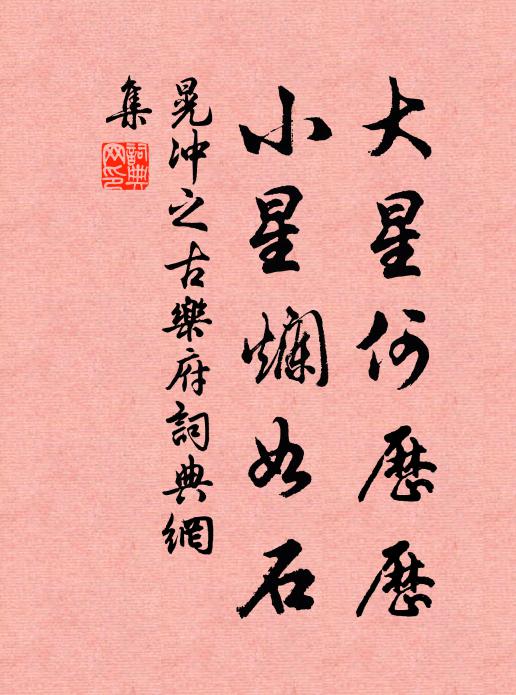 大星何歷歷
小星爛如石
晁沖之古樂府詞典網
集
詞典網印